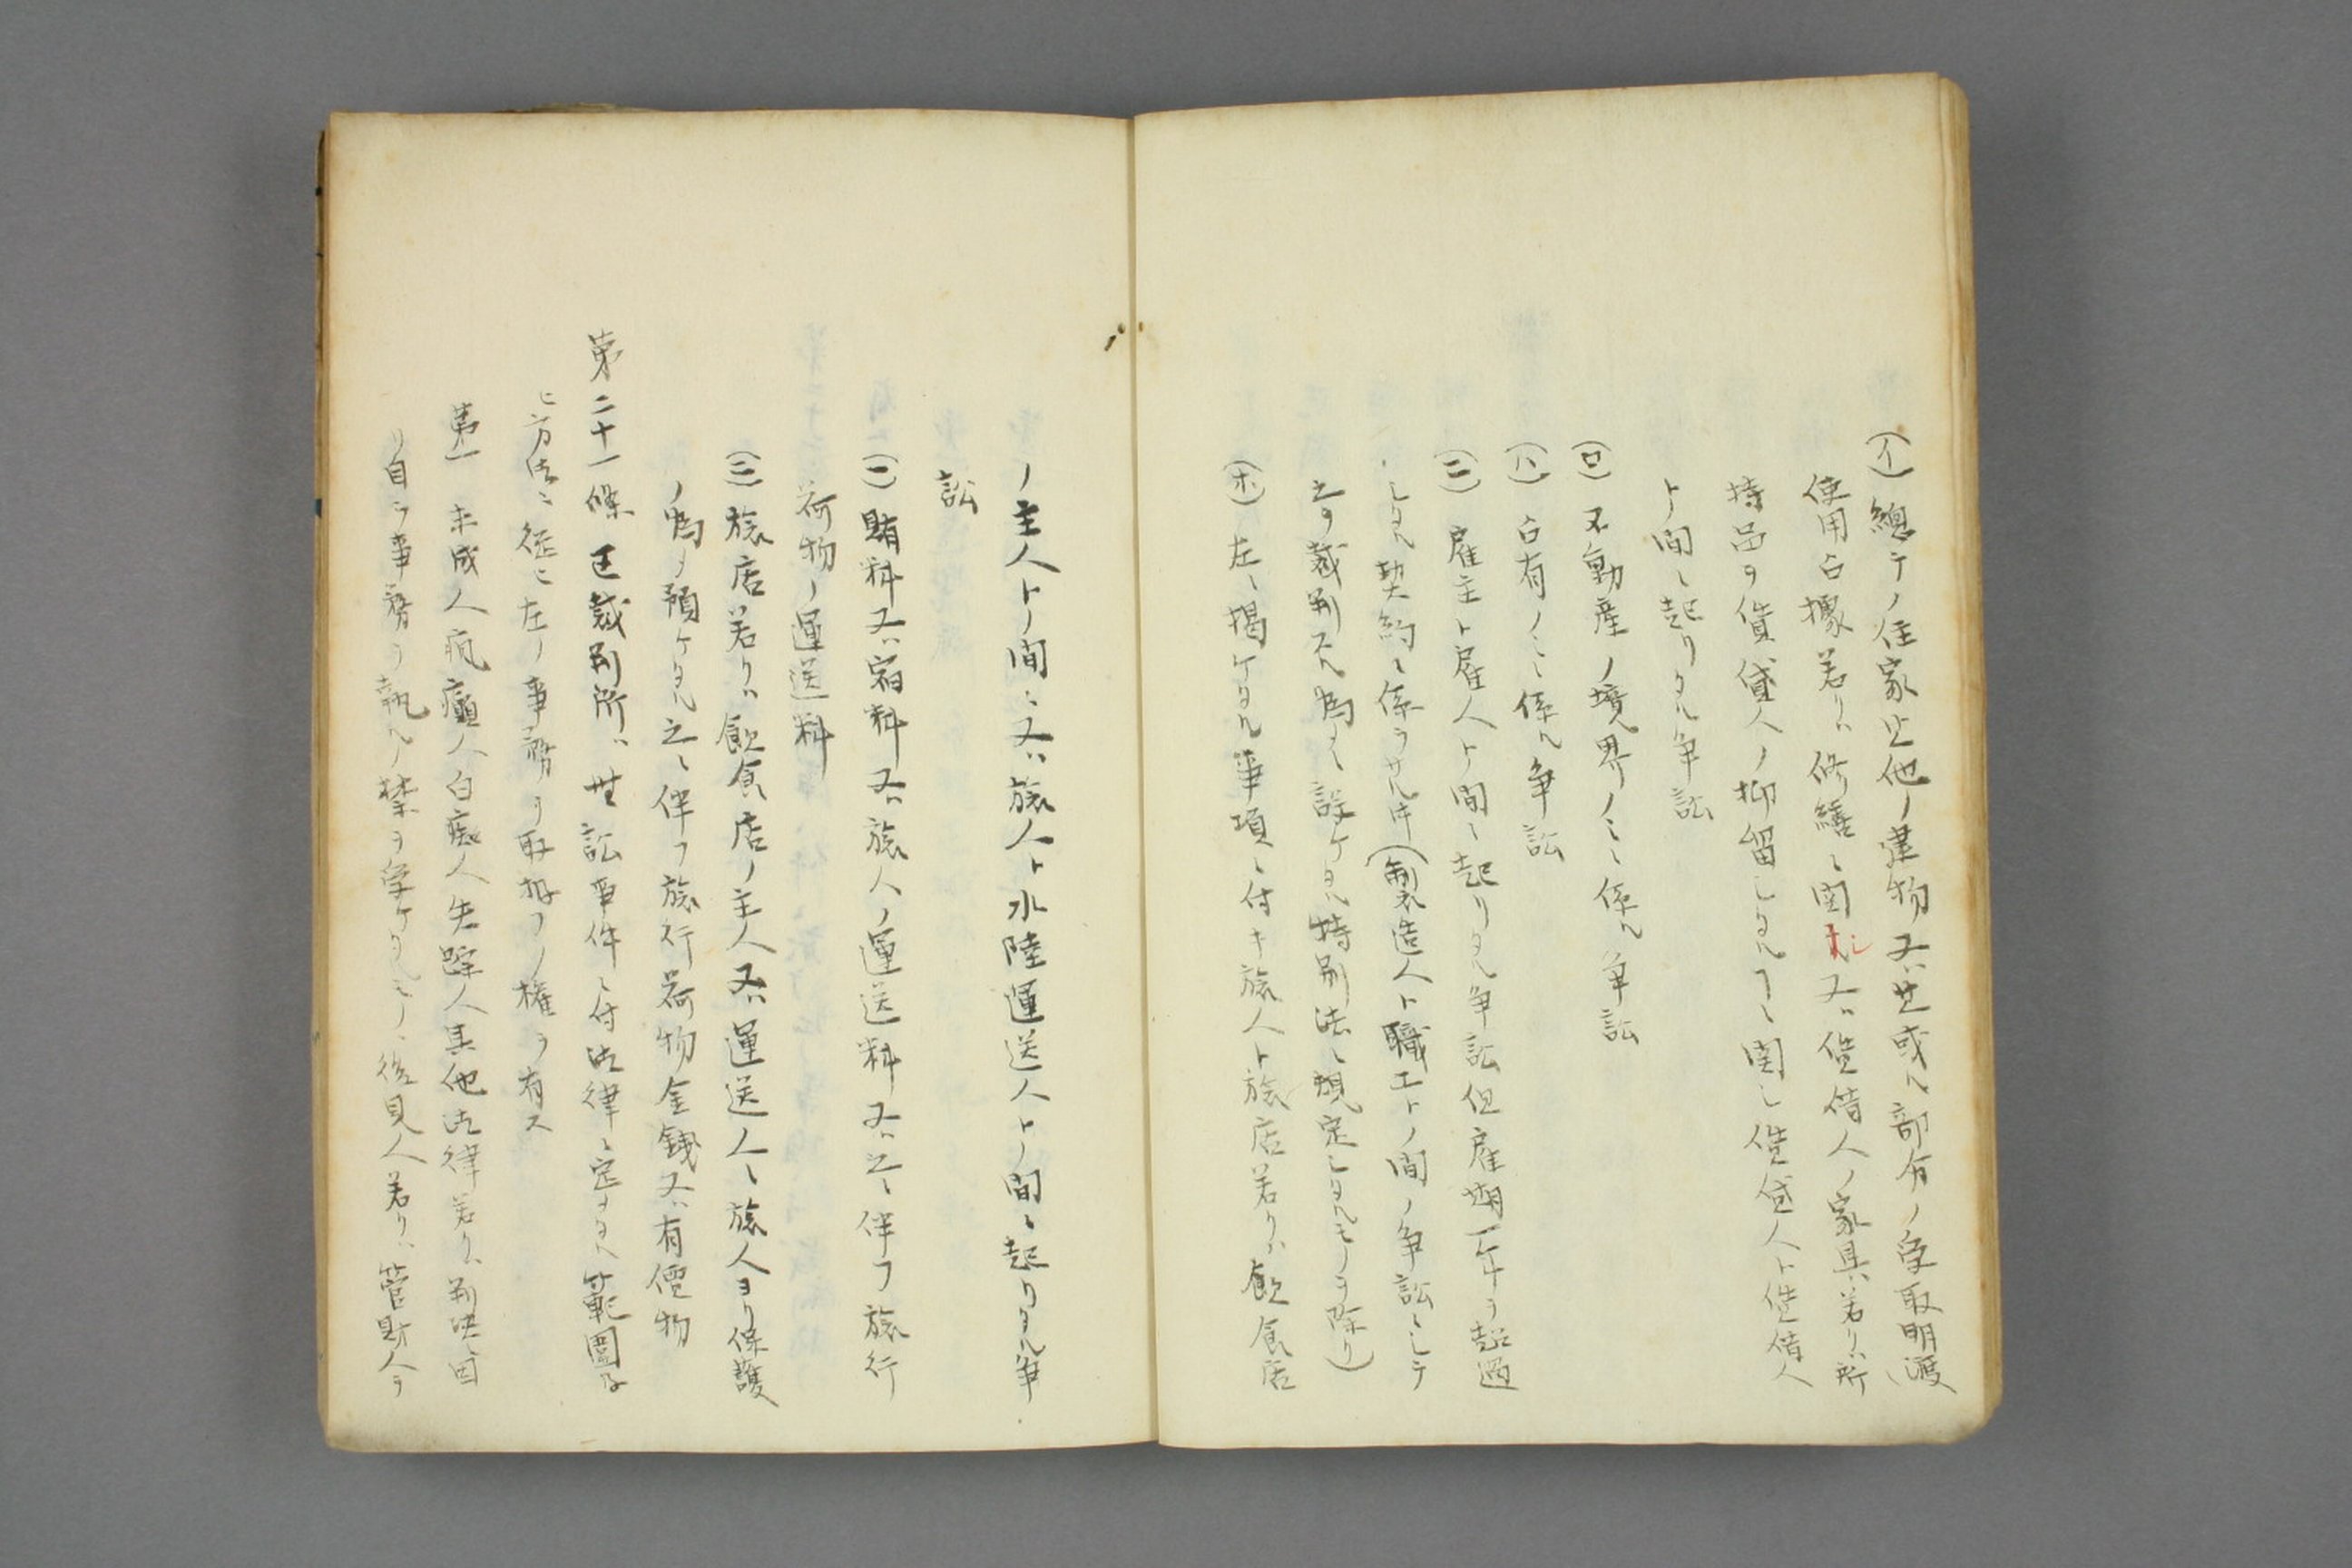 (イ)總テノ住家其他ノ建物又ハ其或ル部分ノ受取明渡
使用占據若クハ修繕ニ関シ又ハ賃借人ノ家具若クハ所
持品ヲ賃貸人ノ抑留シタルヿニ関シ賃貸人ト賃借人
ト間ニ起リタル争訟
(ロ)不動産ノ境界ノミニ係ル争訟
(ハ)占有ノミニ係ル争訟
(ニ)雇主ト雇人ト間ニ起リタル争訟但雇期一年ヲ起過
シタル契約ニ係ラサル件(製造人ト職工トノ間ノ争訟ニシテ
之ヲ裁判スル為メニ設ケタル特別法ニ規定シタルモノヲ除ク)
(ホ)左ニ掲ケタル事項ニ付キ旅人ト旅店若クハ飲食店
ノ主人トノ間ニ又ハ旅人ト水陸運送人トノ間ニ起リタル争
訟
(一)賄料又ハ宿料又ハ旅人ノ運送料又ハ之ニ伴フ旅行
荷物ノ運送料
(二)旅店若クハ飲食店ノ主人又ハ運送人ニ旅人ヨリ保護
ノ為メ預ケタル之ニ伴フ旅行荷物金錢又ハ有價物
第二十一條 區裁判所ハ其訟事件ニ付法律ニ定メタル範圍及
ヒ方法ニ從ヒ左ノ事務ヲ取扱フノ權ヲ有ス
第一 未成人瘋癲人白痴人失踪人其他法律若クハ判决ニ因
リ自ラ事務ヲ執ルノ禁ヲ受ケタルモノニ後見人若クハ管財人ヲ